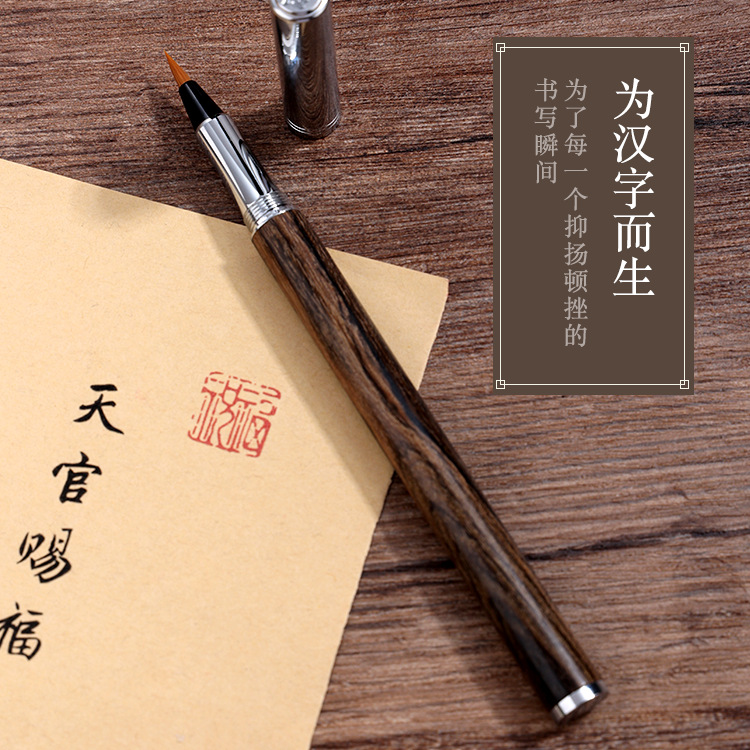 为汉字而生
为了每一个抑扬顿挫的
书写瞬间
天官赐福